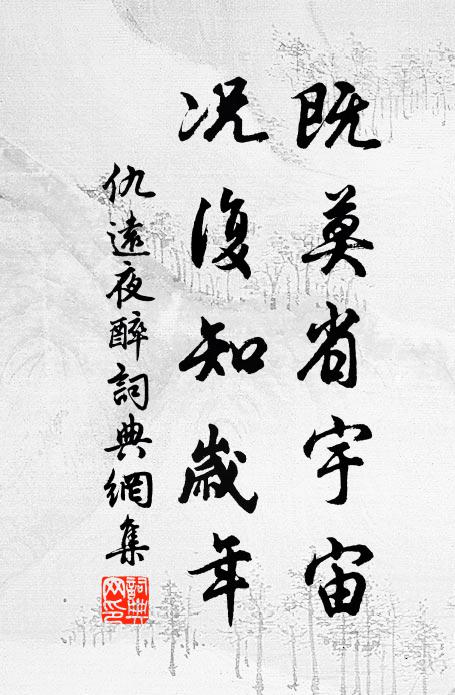 既莫省宇宙
况復知歲年
仇遠夜醉詞典網集